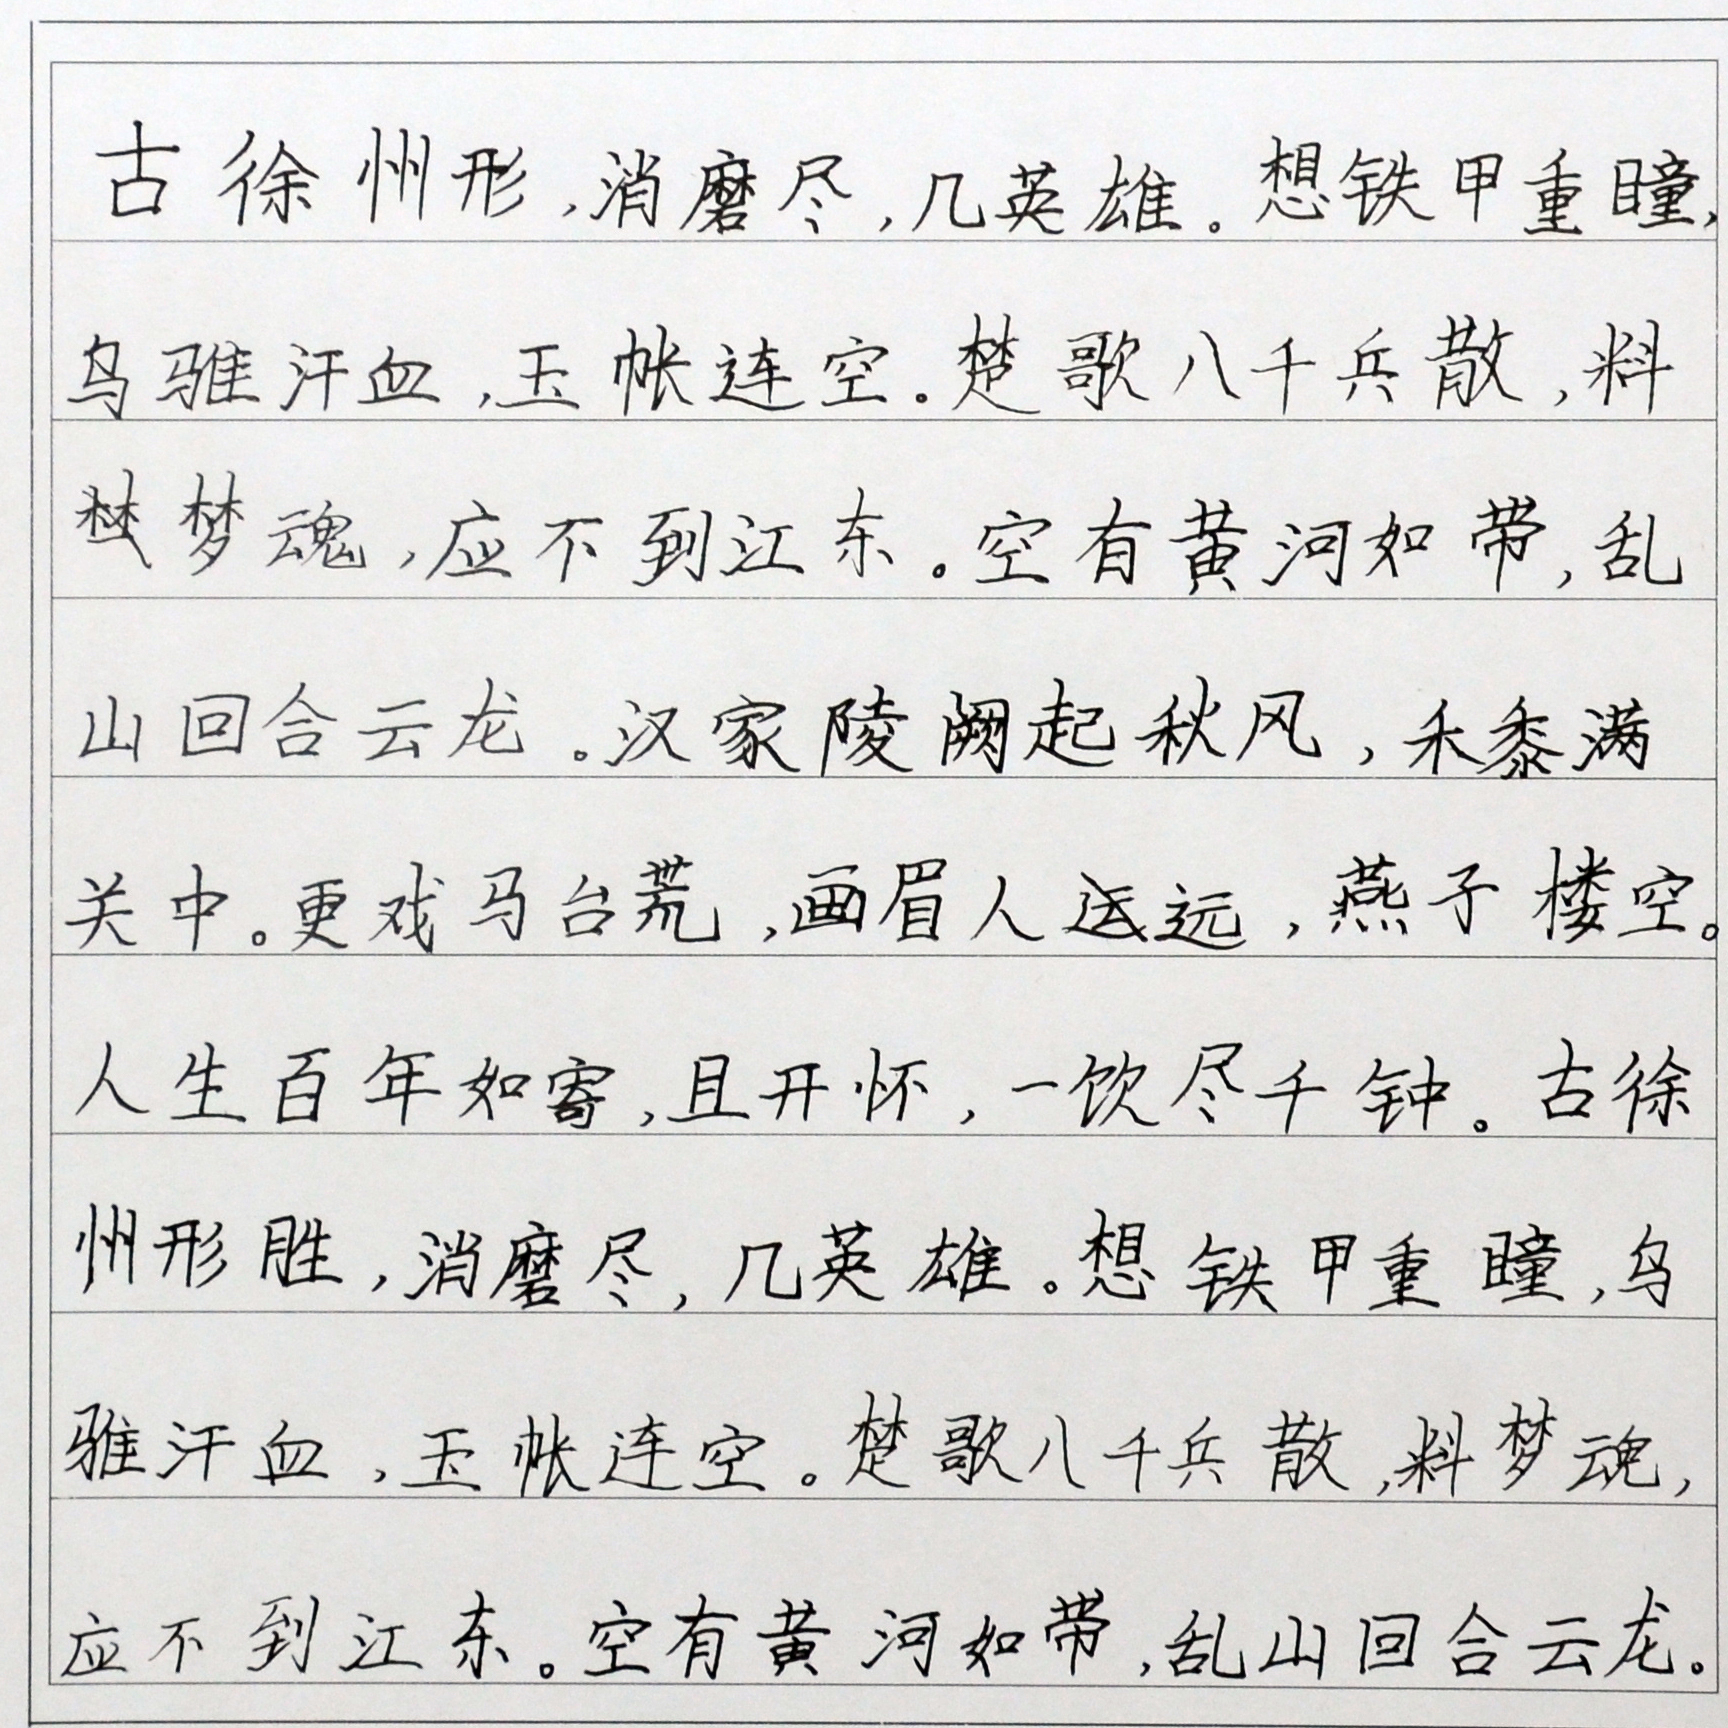 古徐州形，消磨尽，几英雄。想铁甲重瞳，
乌骓汗血，玉帐连空。楚歌八千兵散，料
梦魂，应不到江东。空有黄河如带，乱
山回合云龙。汉家陵阙起秋风，禾黍满
关中。更戏马台荒，画眉人远，燕子楼空。
人生百年如寄，且开怀，一饮尽千钟。古徐
州形胜，消磨尽，几英雄。想铁甲重瞳，乌
骓汗血，玉帐连空。楚歌八千兵散，料梦魂，
应不到江东。空有黄河如带，乱山回合云龙。